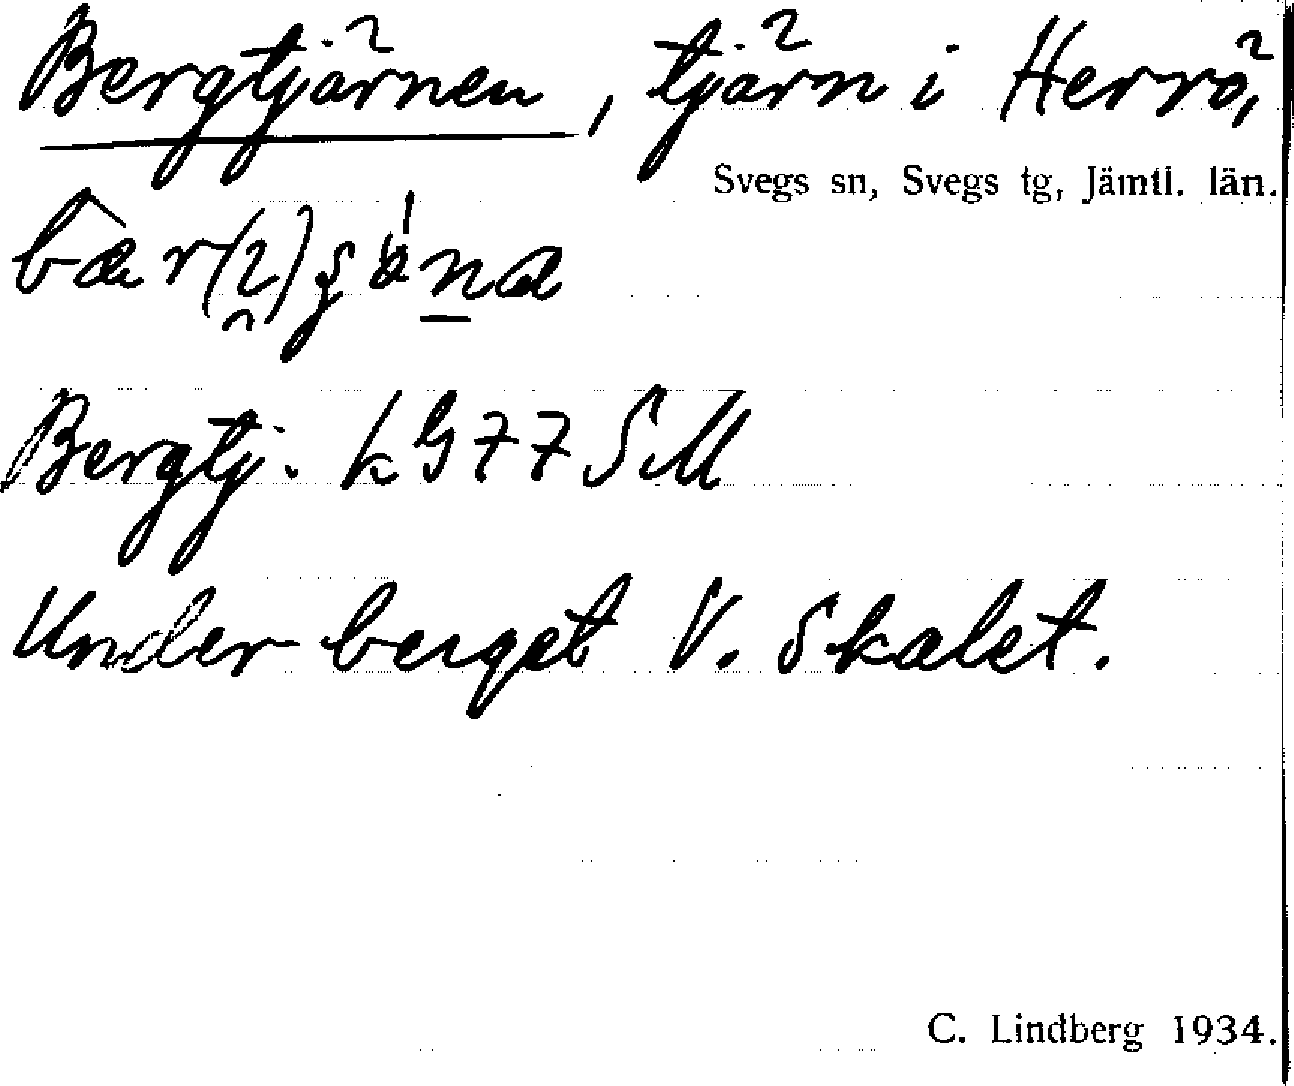 Bergtjärnen, tjärn i Herrö,
Svegs sn, Svegs tg, Jämtl. län.
Bergtj. kG77SM
Under berget V. Skalet.
C. Lindberg 1934.